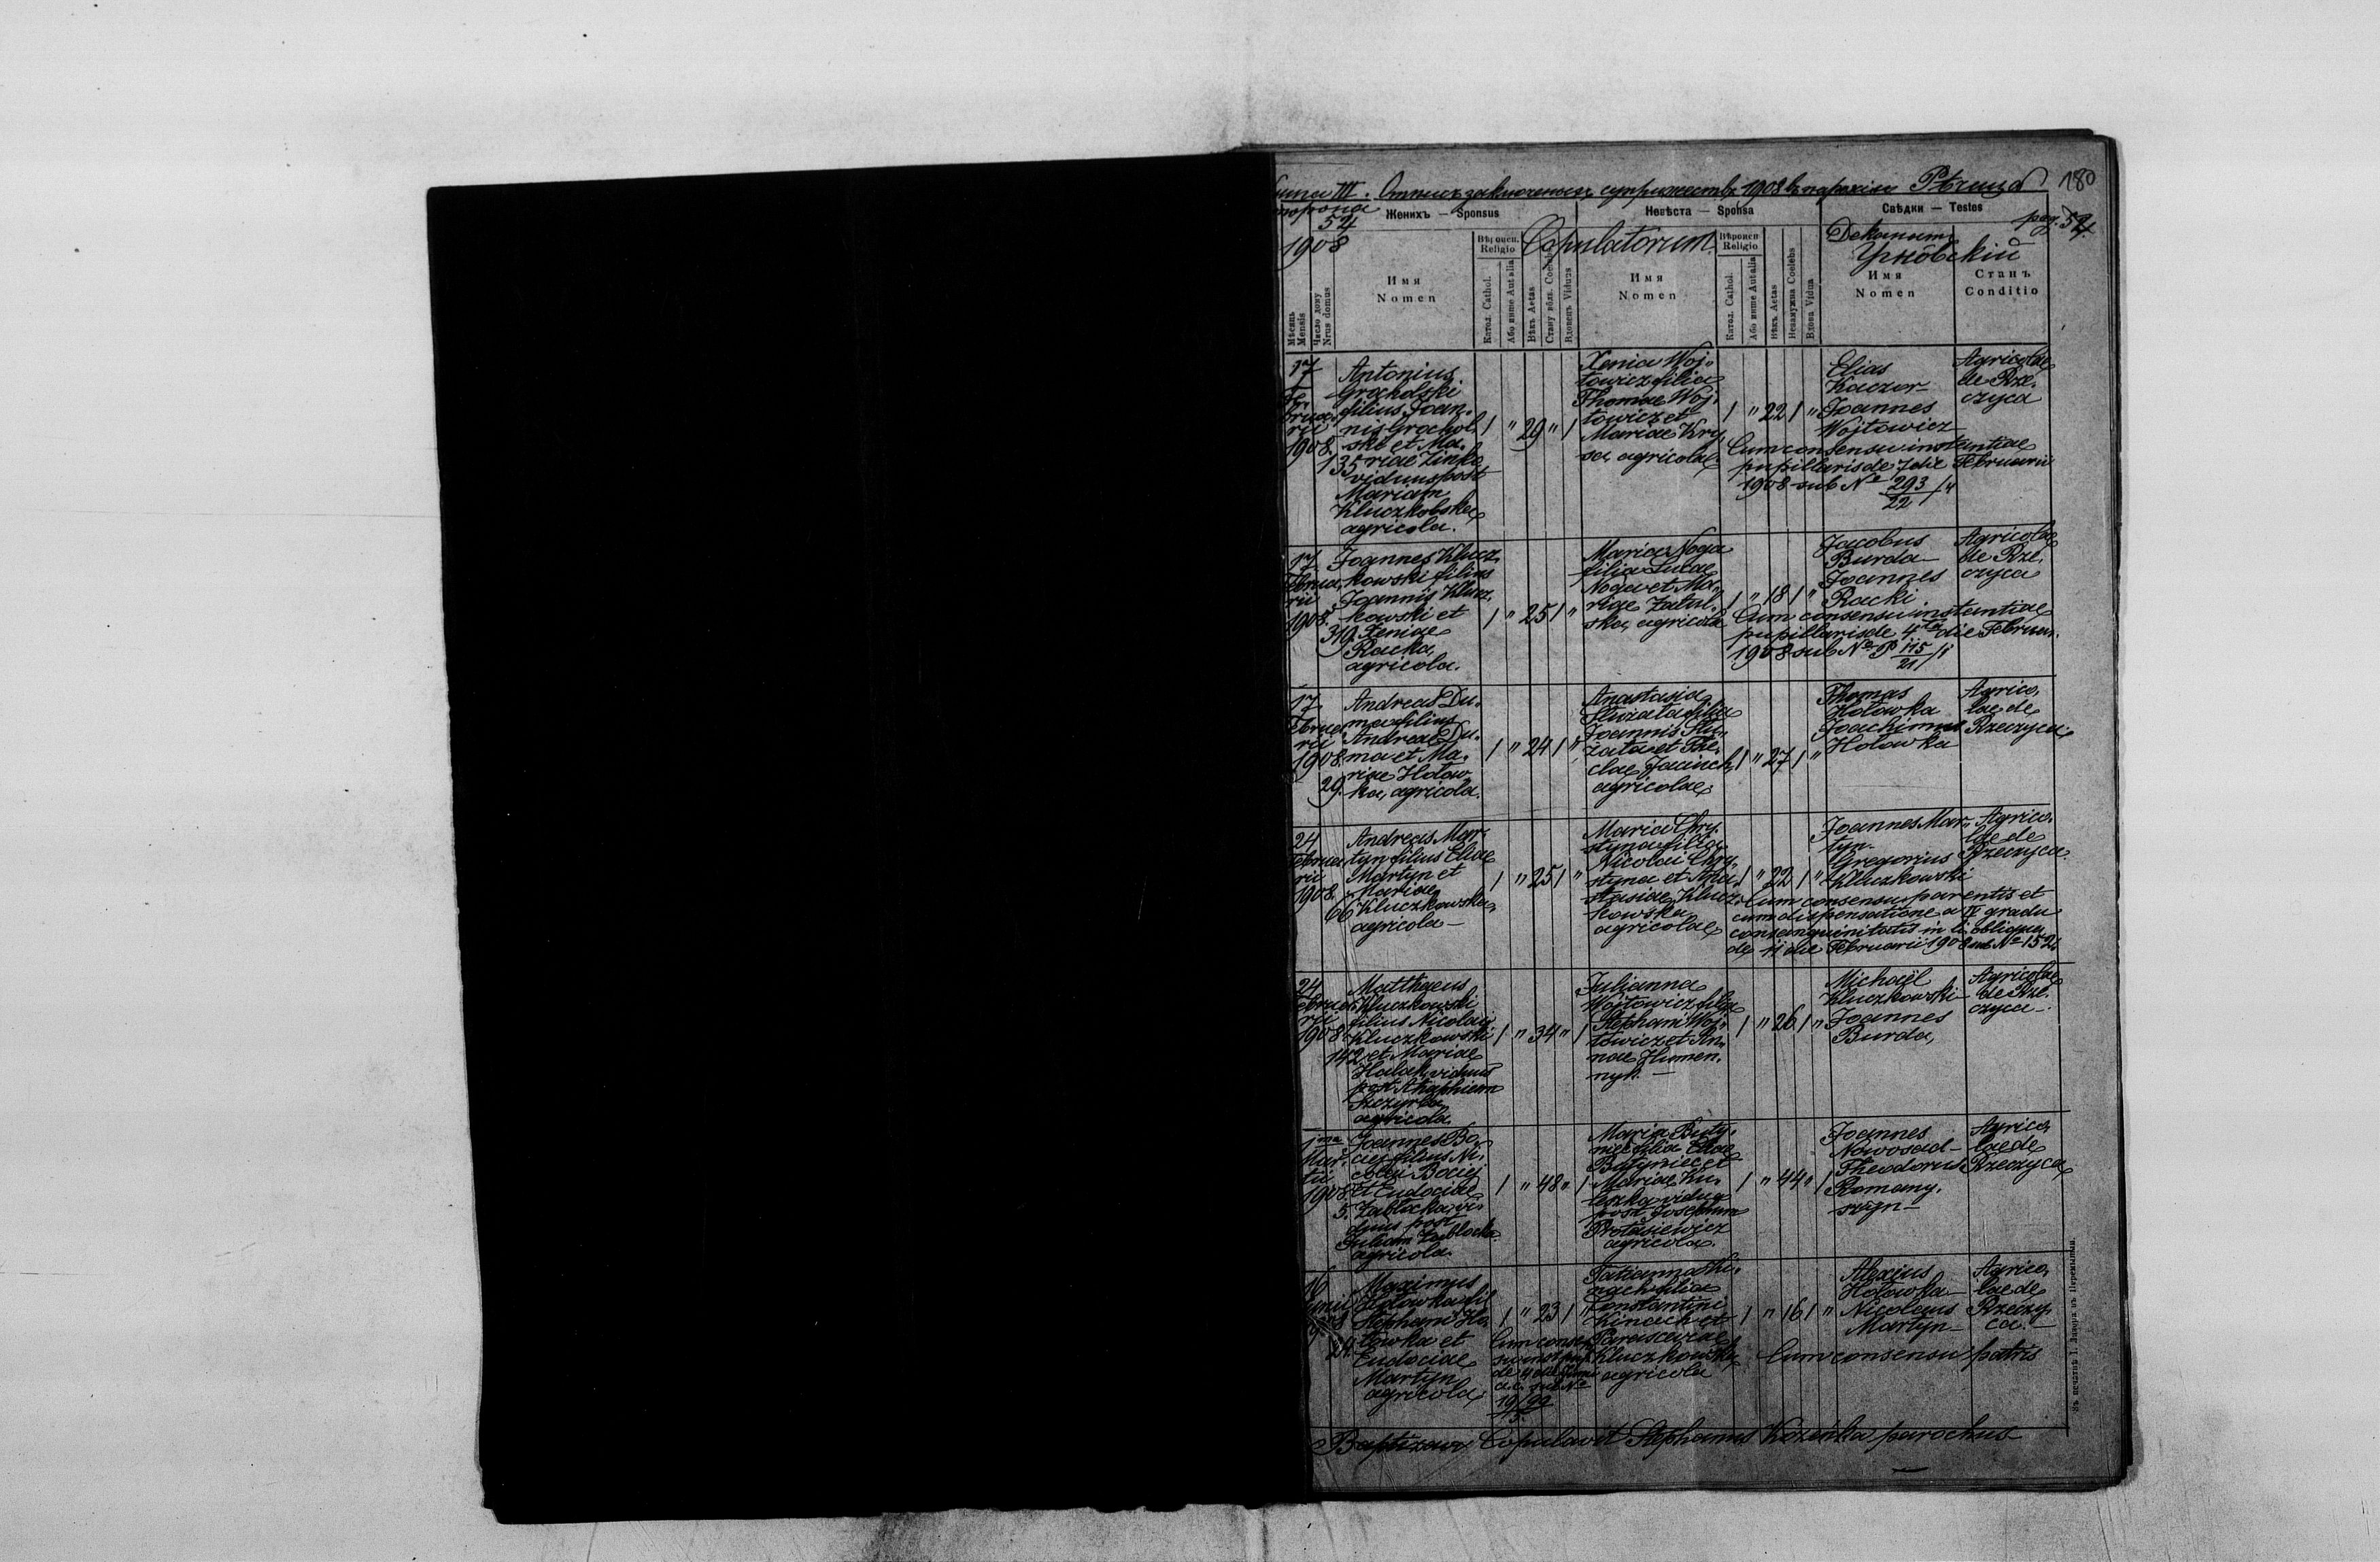 III. Отпись заключенныхъ супружествъ 1908 въ парохіи Рѣчица 180
54 Женихъ — Sponsus Невѣста — Sponsa Свѣдки — Testes pag. 54
1908 Copulatorum Деканатъ
Вѣроисп. Religio Вѣроисп. Religio
Мѣсяць Mensis
Число дому Nrus domus
Имя Nomen
Катол. Cathol.
Або инше Aut alia
Вѣкъ Aetas
Стану вôльн. Coelebs
Вдовець Viduus
Имя Nomen
Катол. Cathol.
Або инше Aut alia
Вѣкъ Aetas
Незамужна Coelebs
Вдова Vidua
Имя Nomen
Станъ Conditio
17
bruarii
1908.
135
Antonius
Grohalski
filius Joan-
nis Grohol-
ski et Ma-
riae Zinko
viduus post
Mariam
Kluczkowska
agricola.
1 " 29 " 1
Xenia Woj-
towicz filia
Thomae Woj-
towicz et
Mariae Kry
sa, agricolae
1 " 22 1 "
Elias
Kaczor—
Joannes
Wojtowicz
Agricolae
de Rze-
czyca
Cum consensu instantiae
pupillaris de 7 die Februarii
1908 sub No 293/4
22
17
Februa-
rii
1908.
319.
Joannes Klucz-
kowski filius
Joannis Klucz-
kowski et
Xeniae
Racka,
agricola.
1 " 25 1 "
Maria Noga
filia Lucae
Noga et Ma-
riae Zatul-
ska, agricolae
1 " 18 1 "
Jacobus
Burda—
Joannes
Racki
Agricolae
de Rze-
czyca
Cum consensu instantiae
pupillaris de 4ta die Februar.
1908 sub No P 115/1
21
17
Februa-
rii
1908.
29.
Andreas Du-
ma filius
Andreae Du-
ma et Ma-
riae Hołow-
ka, agricola.
1 " 24 1 "
Anastasia
filia
Joannis
et The-
clae Jacinch,
agricolae
1 " 27 1 "
Thomas
Hołowka
Joachimus
Hołowka
Agrico-
lae de
Rzeczyca.
24
Februa-
rii
1908.
66
Andreas Mar-
tyn filius Eliae
Martyn et
Mariae
Kluczkowska,
agricola—
1 " 25 1 "
Maria Chry-
styna filia
Nicolai Chry-
styna et Ana-
stasiae Klucz-
kowska
agricolae
1 " 22 1 "
Joannes Mar-
tyn—
Gregorius
Kluczkowski
Agrico-
lae de
Rzeczyca.
Cum consensu parentis et
cum dispensatione a IV gradu
consanguinitatis in li obliqua
de 11 die Februarii 1908 sub No 152
24
Februa-
rii
1908.
142
Matthaeus
Kluczkowski
filius Nicolai
Kluczkowski
et Mariae
Halak, viduus
post
agricola.
1 " 34 " 1
Julianna
Wojtowicz filia
Stephani Woj-
towicz et An-
nae Humen-
nyk.—
1 " 26 1 "
Michaël
Kluczkowski—
Joannes
Burda,
Agricolae
de Rze-
czyca—.
1ma
Mar-
tii
1908.
5.
Joannes Bo-
ciej filius Ni-
colai Bociej
et Eudociae
Zabłocka, vi-
duus post
Juliam Zabłocka
agricola.
1 " 48 " 1
Maria Buty-
niec filia Eliae
Butyniec et
Mariae Ku-
vidua
post Josephum
Protasiewicz
agricola.
1 " 44 " 1
Joannes
Nowosad—
Theodorus
Romany-
szyn—
Agrico-
lae de
Rzeczyca,
16
24.
Maximus
Hołowka fil
Stephani Ho-
łowka et
Eudociae
Martyn
agricola,
1 " 23 1 "
Cum consen-
a.c. sub No
19/92
5.
Tatianna Ki-
nach filia
Constantini
Kinach et
Parasceviae
Kluczkowska,
agricola
1 " 16 1 "
Alexius
Hołowka—
Nicolaus
Martyn—
Agrico-
lae de
Rzeczy-
ca.—
Cum consensu patris
Copulavit Stephanus parochus